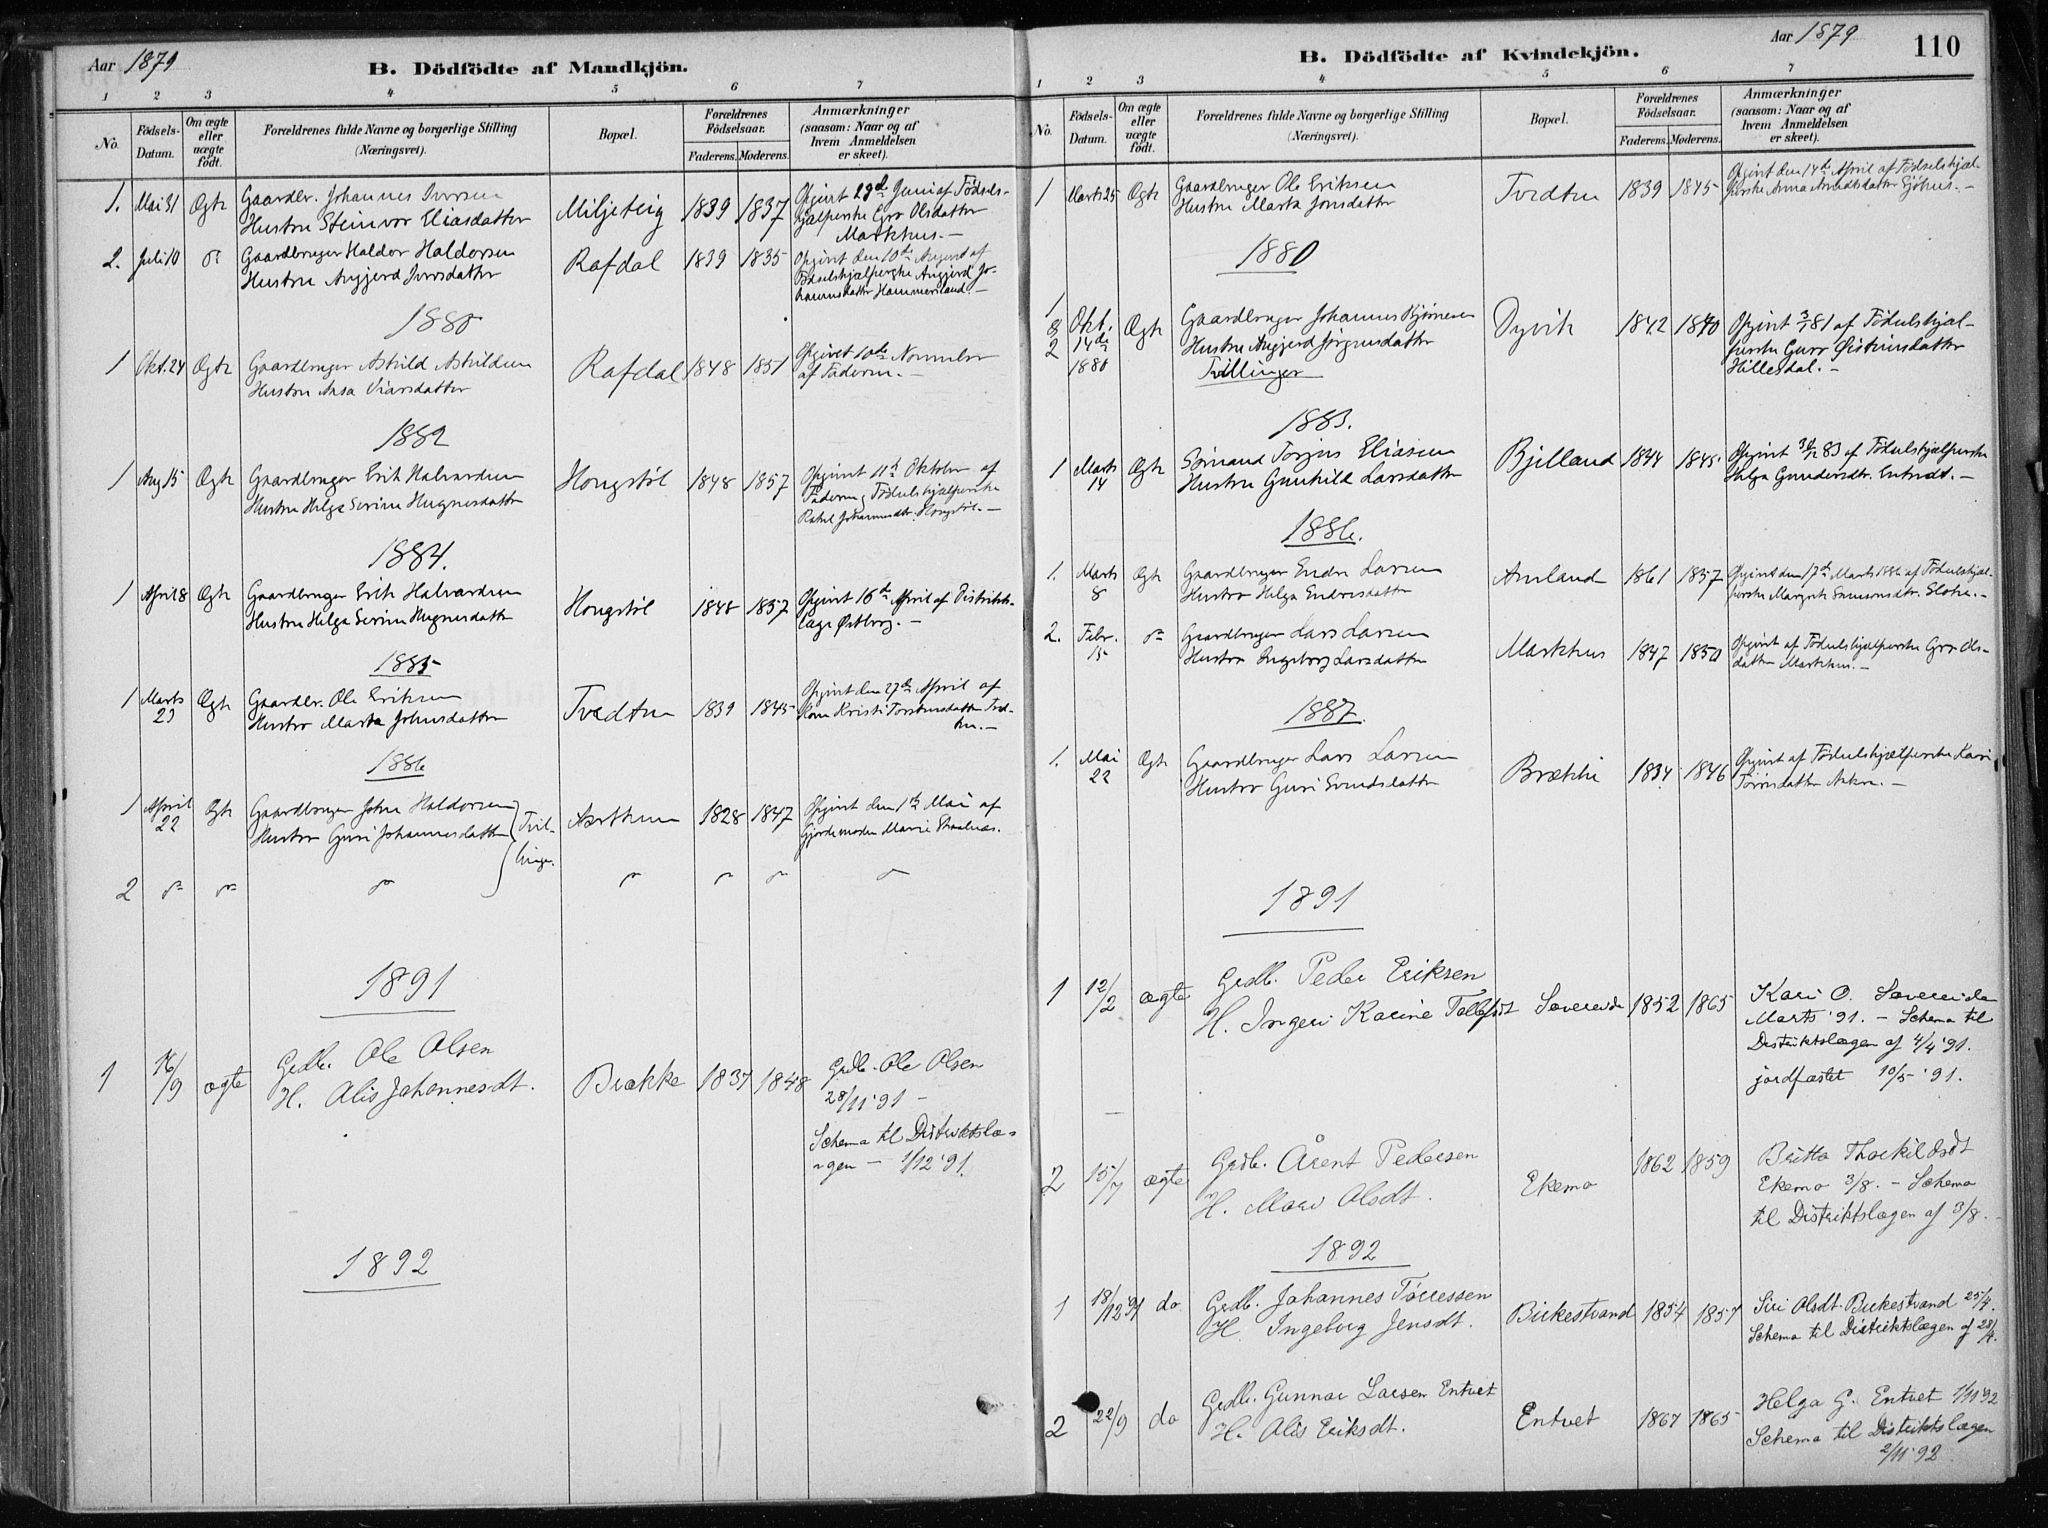 Aar 1879
B. Dödfödte af Mandkjön.
1 2 3 4 5 6 7
No.
Födsels-
Datum.
Om ægte
eller
uægte
födt.
Forældrenes fulde Navne og borgerlige Stilling
(Næringsvei).
Bopæl.
Forældrenes
Födselsaar.
Faderens. Moderens.
Anmærkninger
(saasom: Naar og af
hvem Anmeldelsen
er skeet).
1. Mai 31 Ægte Gaardbr. Johannes Iversen
Hustru Steinvor Eliasdatter
Miljeteig 1839 1837
Opgivet Juni af Fødsels-
hjælperske Gro Olsdatter
Markhus. —
2. Juli 10 Gaardbruger Haldor Haldorsen
Hustru Angjerd Iversdatter
Rafdal 1839 1835
Opgivet den 10de August af
Fødselshjælperske Angjerd Jo-
hannesdatter Hammersland. —
1880
1 Okt. 24 Ægte Gaardbruger Askild Askildsen
Hustru Assa Viarsdatter
Rafdal 1848 1851
Opgivet 10de November
af Faderen. —
1882
1 Aug 15 Ægte Gaardbruger Erik Halvardsen
Hustru Helga Serine Hugnesdatter
Hongstøl 1848 1857
Opgivet 11te Oktober af
Faderen Fødselshjælperske
Rakel Johannesdtr. Hongstøl. —
1884.
1 April 8 Ægte Gaardbruger Erik Halvardsen
Hustru Helga Serine Hugnesdatter
Hongstøl 1848 1857
Opgivet 16de April af Distrikts-
læge Østberg. —
1885
1 Marts
23 Ægte Gaardbr. Ole Eriksen
Hustru Marta Johnsdatter
Tvedten 1839 1845
Opgivet den 27de April af
Kone Kristi Torstensdatter Tved-
ten. —
1886
1 April
22 Ægte Gaardbruger John Haldorsen
Hustru Guri Johannesdatter
Tvil-
linger.
Aarthun 1828 1847
Opgivet den 1te Mai af
Gjordemoder Marie
2
1891
1 16/9 ægte Grdb. Ole Olsen
H. Alis Johannesdt.
Brække 1837 1848
Grdb. Ole Olsen
28/11 '91 —
Schema til Distriktslæ-
gen — 1/12 '91.
1892
Aar 1879
110
B. Dödfödte af Kvindekjön.
1 2 3 4 5 6 7
No.
Födsels-
Datum.
Om ægte
eller
uægte
födt.
Forældrenes fulde Navne og borgerlige Stilling
(Næringsvei).
Bopæl.
Forældrenes
Födselsaar.
Faderens. Moderens.
Anmærkninger
(saasom: Naar og af
hvem Anmeldelsen
er skeet).
1 Marts 25 Ægte Gaardbruger Ole Eriksen
Hustru Marta Jonsdatter
Tvedten 1839 1845
Opgivet den 14de April af Fødselshjæl-
perske Anna Arvedsdatter Sjøhus. —
1880
1
&
2
Okt.
14de
1880
Ægte Gaardbruger Johannes
Hustru Angjerd Jørgensdatter
Tvillinger
Dyvik 1842 1840
Opgivet 3/1 81 af Fødselshjæl-
perske Guro Øistensdatter
Hillesdal. —
1883.
1 Marts
14 Ægte Sømand Torjus Eliasen
Hustru Gunhild Larsdatter
Bjelland 1844 1845.
Opgivet 83 af Fødselshjælperske
Helga Gundersdtr. Entvedt. —
1886.
1. Marts
8 Ægte Gaardbruger Endre Larsen
Hustru Helga Endresdatter
Amland 1861 1857
Opgivet den 17de Marts 1886 af Fødselshjæl-
perske Margrete Simonsdtr. —
2. Febr.
15 Gaardbruger Lars Larsen
Hustru Ingeborg Larsdatter
Markhus 1847 1850
Opgivet af Fødselshjælperske Gro Ols-
datter Markhus. —
1887.
1. Mai
22 Ægte Gaardbruger Lars Larsen
Hustru Guri Svendsdatter
Brække 1834 1846
Opgivet af Fødselshjælperske Kari
Tørresdatter Akre. —
1891
1 12/2 ægte Grdb. Peder Eriksen
H. Ingeri Karine Tollefsdt
Sævereide 1852 1865
Kari O. Sævereide
Marts '91. — Schema til
Distriktslægen af 4/4 '91.
jordfæstet 10/5 '91.
2 15/7 ægte Grdb. Årent Pedersen
H. Mari Olsdt.
Ekemo 1862 1859
Britta Thorkildsdt
Ekemo 3/8. — Schema
til Distriktslægen af 3/8. —
1892
1 18/12 '91 do Grdb. Johannes Tørressen
H. Ingeborg Jensdt.
Birkestrand 1854 1857
Siri Olsdt. Birkestrand 25/4.
Schema til Distriktslægen af 28/4.
2 22/9 do Grdb. Gunnar Larsen Entvet
H. Alis Eriksdt.
Entvet 1867 1865
Helga G. Entvet 1/11 '92
Schema til Distriktslægen
2/11 '92.